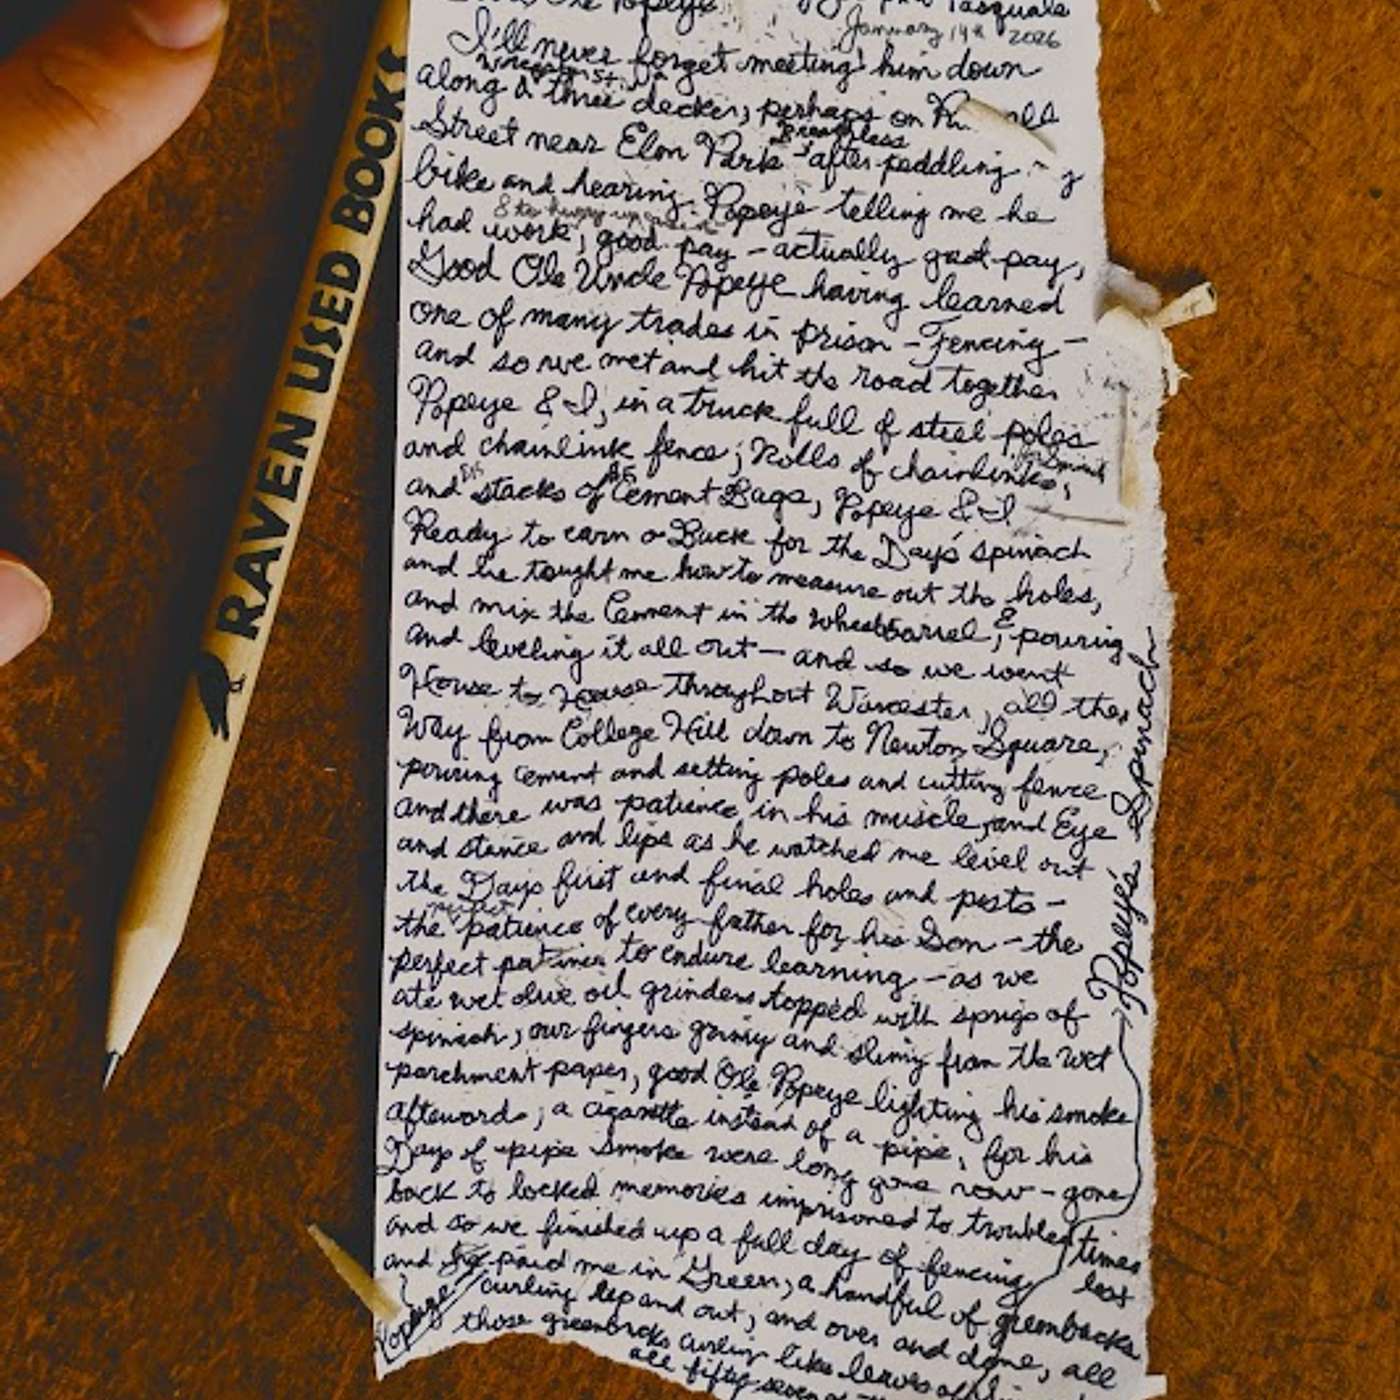 Ole Popeye
Pasquale
January 14th 2026
I'll never forget meeting him down
Winslow St.
along a three decker, perhaps on
Breathless
Street near Elm Park after peddling my
bike and hearing Popeye telling me he
& to hurry up
had work, good pay – actually good pay,
Good Ole Uncle Popeye having learned
one of many trades in prison – Fencing –
and so we met and hit the road together
Popeye & I, in a truck full of steel poles
and chainlink fence; Rolls of chainlinks,
and stacks of Cement Bags, Popeye & I
Ready to earn a Buck for the Day's spinach
and he tought me how to measure out the holes,
and mix the Cement in the wheelbarrel, & pouring
and leveling it all out – and so we went
House to House throughout Worcester, all the
Way from College Hill down to Newton Square,
pouring cement and setting poles and cutting fence
and there was patience in his muscle, and Eye
and stance and lips as he watched me level out
the Days first and final holes and posts –
perfect
the patience of every father for his Son – the
perfect patience to endure learning – as we
ate wet olive oil grinders topped with sprigs of
spinach, our fingers grimy and slimy from the wet
parchment paper, good Ole Popeye lighting his smoke
afterwords, a cigarette instead of a pipe, for his
Days of pipe smoke were long gone now – gone
back to locked memories imprisoned to troubled times
and so we finished up a full day of fencing
lost
and paid me in Green, a handful of greenbacks
Popeye
curling up and out, and over and done, all
those greenbacks curling like leaves of
all fifty seven of
Popeye's Spinach
RAVEN USED BOOKS